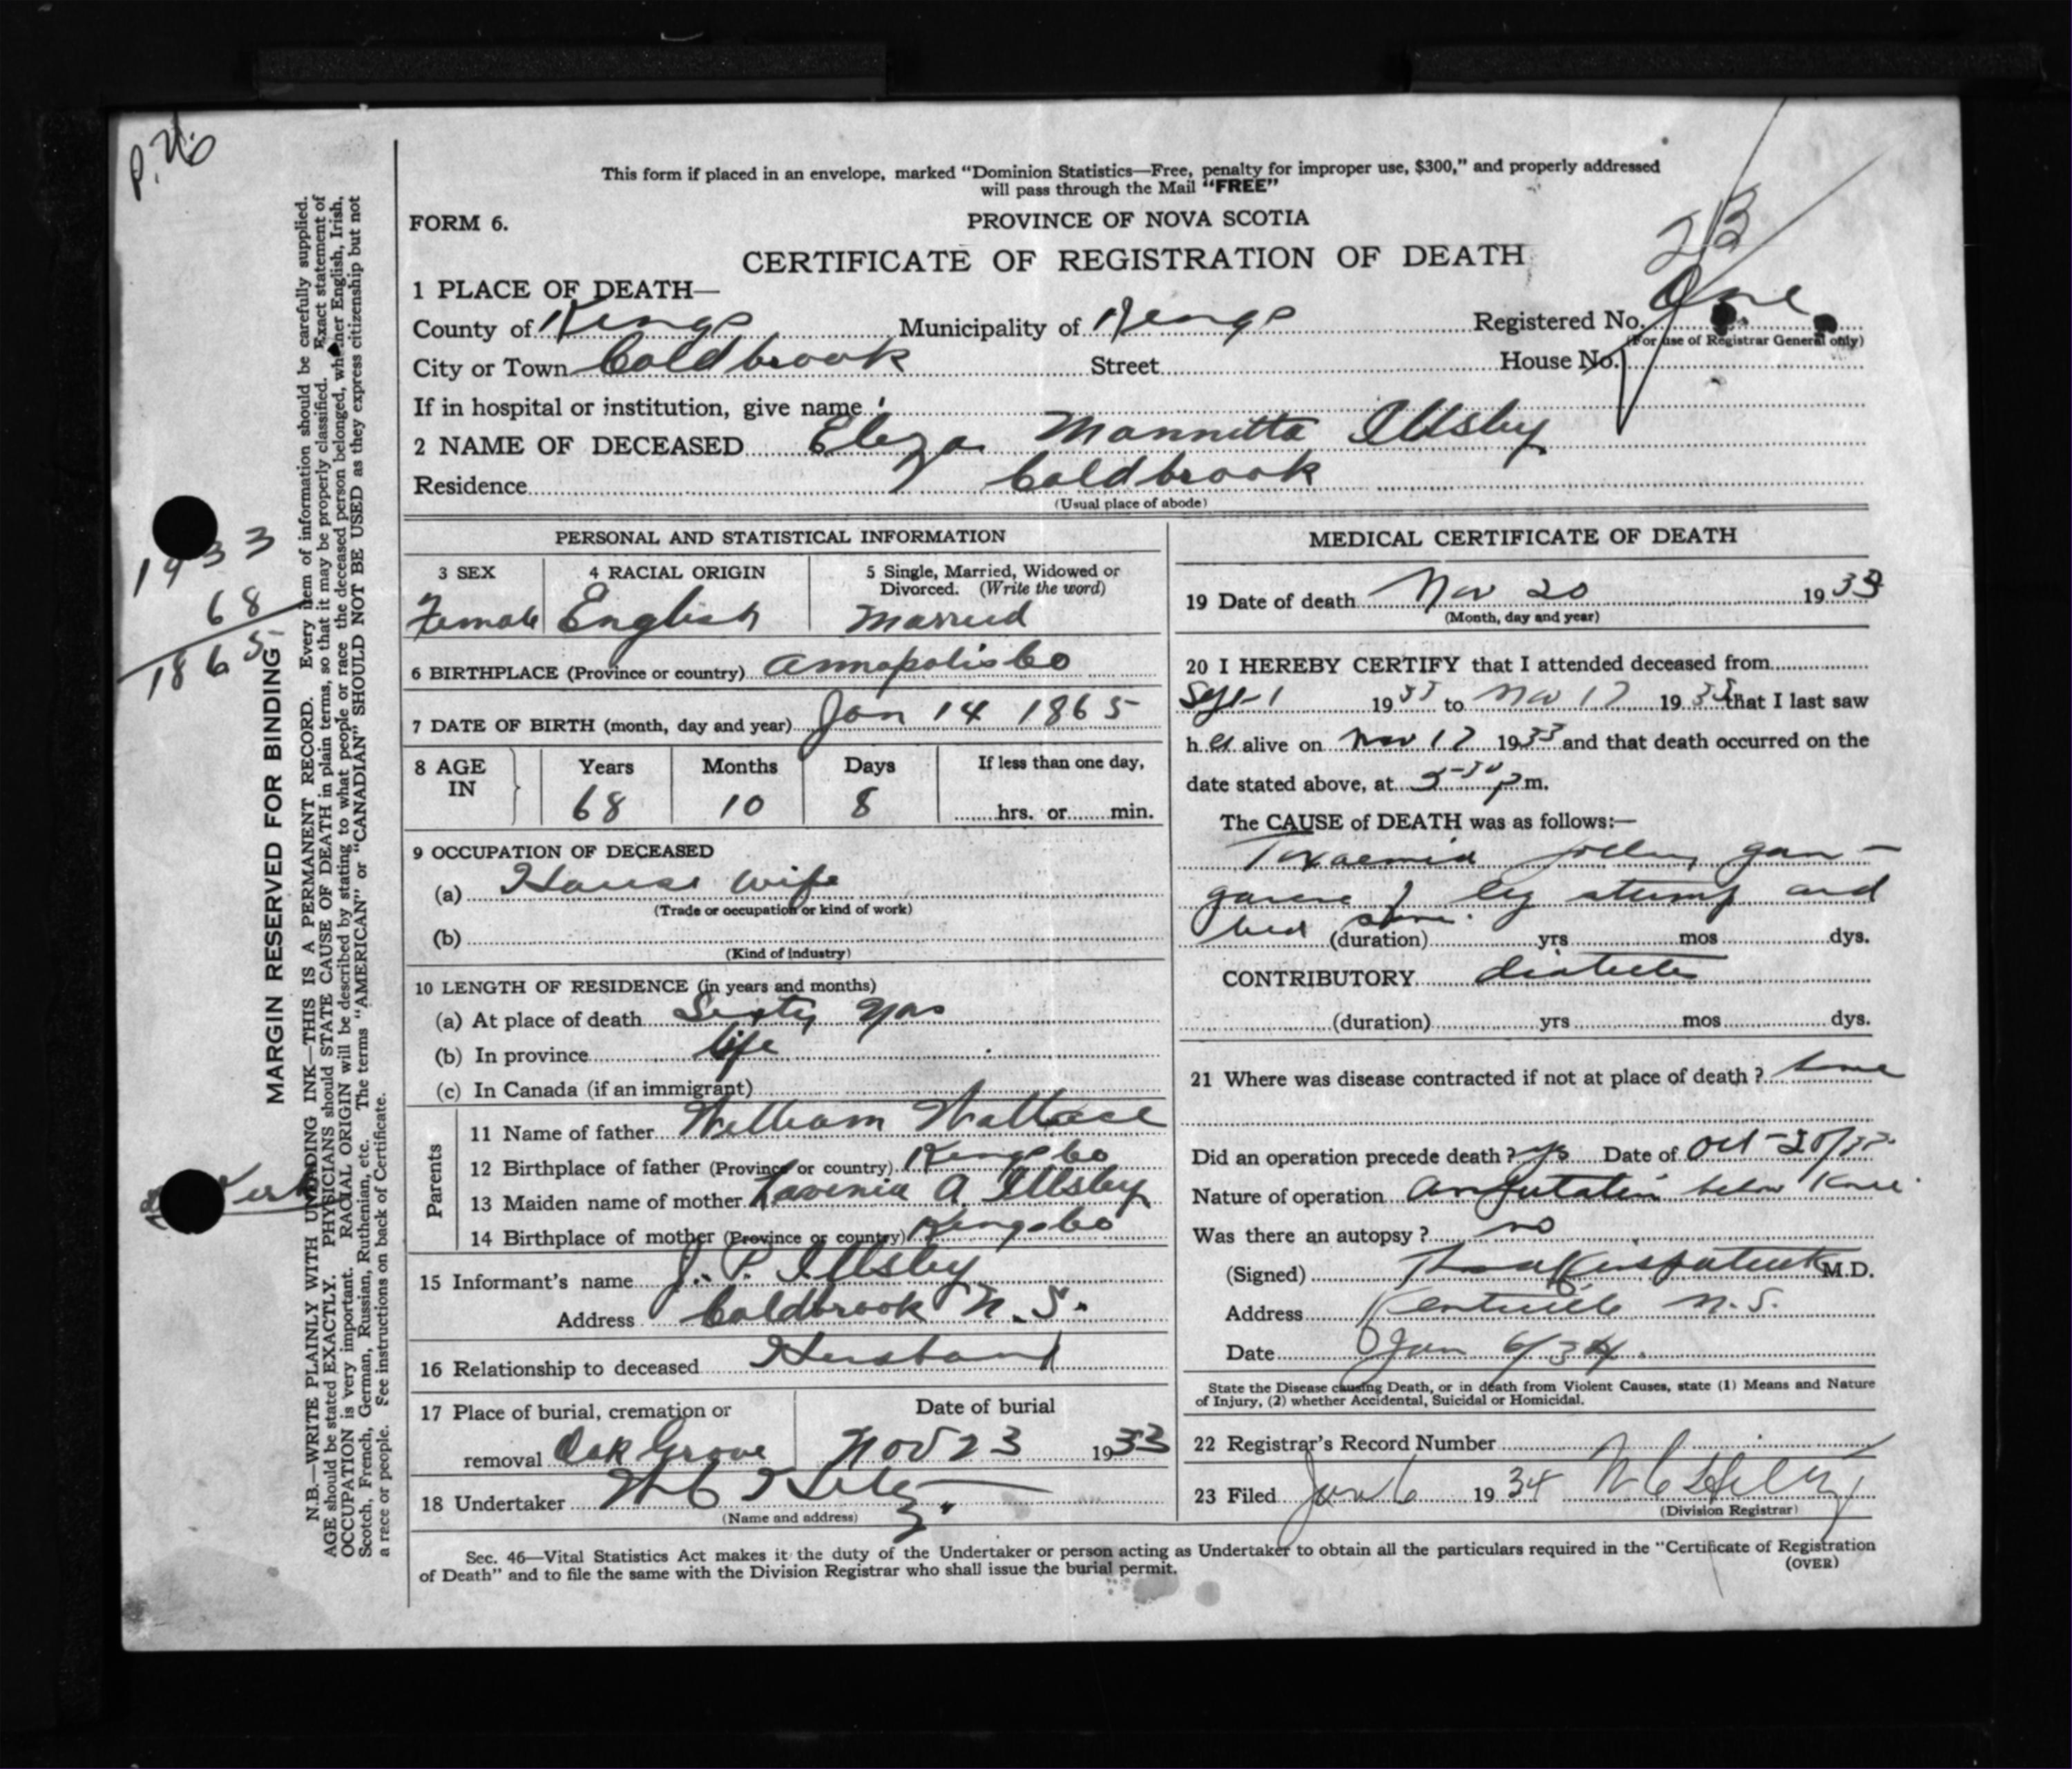 P. 26
This form if placed in an envelope, marked "Dominion Statistics—Free, penalty for improper use, $300," and properly addressed
will pass through the Mail "FREE"
FORM 6.
PROVINCE OF NOVA SCOTIA
2B
CERTIFICATE OF REGISTRATION OF DEATH
1 PLACE OF DEATH—
County of Kings Municipality of Kings Registered No. One
(For use of Registrar General only)
City or Town Coldbrook Street House No.
If in hospital or institution, give name
2 NAME OF DECEASED Eliza Mannitta Illsley
Residence Coldbrook
(Usual place of abode)
PERSONAL AND STATISTICAL INFORMATION
3 SEX 4 RACIAL ORIGIN 5 Single, Married, Widowed or
Divorced. (Write the word)
Female English Married
6 BIRTHPLACE (Province or country) Annapolis Co
7 DATE OF BIRTH (month, day and year) Jan 14 1865
8 AGE IN Years Months Days If less than one day,
68 10 8 hrs. or min.
9 OCCUPATION OF DECEASED
(a) House wife
(Trade or occupation or kind of work)
(b)
(Kind of industry)
10 LENGTH OF RESIDENCE (in years and months)
(a) At place of death Sixty yrs
(b) In province life
(c) In Canada (if an immigrant)
Parents
11 Name of father William Wallace
12 Birthplace of father (Province or country) Kings Co
13 Maiden name of mother Lavenia A. Illsley
14 Birthplace of mother (Province or country) Kings Co
15 Informant's name J. P. Illsley
Address Coldbrook N. S.
16 Relationship to deceased Husband
17 Place of burial, cremation or Date of burial
removal Oak Grove Nov 23 1933
18 Undertaker
(Name and address)
MEDICAL CERTIFICATE OF DEATH
19 Date of death Nov 20 1933
(Month, day and year)
20 I HEREBY CERTIFY that I attended deceased from
Sept 1 1933 to Nov 17 1933 that I last saw
her alive on Nov 17 1933 and that death occurred on the
date stated above, at 5-30 p m.
The CAUSE of DEATH was as follows:—
Toxaemia follg gan-
grene of leg stump and
bed sore.
(duration) yrs mos dys.
CONTRIBUTORY diabetes
(duration) yrs mos dys.
21 Where was disease contracted if not at place of death?
Did an operation precede death? yes Date of Oct-20/33
Nature of operation amputation below knee.
Was there an autopsy? no
(Signed) Kirkpatrick M.D.
Address Kentville N.S.
Date Jan 6/34.
State the Disease causing Death, or in death from Violent Causes, state (1) Means and Nature
of Injury, (2) whether Accidental, Suicidal or Homicidal.
22 Registrar's Record Number
23 Filed Jan 6 1934
(Division Registrar)
Sec. 46—Vital Statistics Act makes it the duty of the Undertaker or person acting as Undertaker to obtain all the particulars required in the "Certificate of Registration
of Death" and to file the same with the Division Registrar who shall issue the burial permit.
(OVER)
1933
68
1865
MARGIN RESERVED FOR BINDING
N.B.—WRITE PLAINLY WITH UNFADING INK—THIS IS A PERMANENT RECORD. Every item of information should be carefully supplied.
AGE should be stated EXACTLY. PHYSICIANS should STATE CAUSE OF DEATH in plain terms, so that it may be properly classified. Exact statement of
OCCUPATION is very important. RACIAL ORIGIN will be described by stating to what people or race the deceased person belonged, whether English, Irish,
Scotch, French, German, Russian, Ruthenian, etc. The terms "AMERICAN" or "CANADIAN" SHOULD NOT BE USED as they express citizenship but not
a race or people. See instructions on back of Certificate.